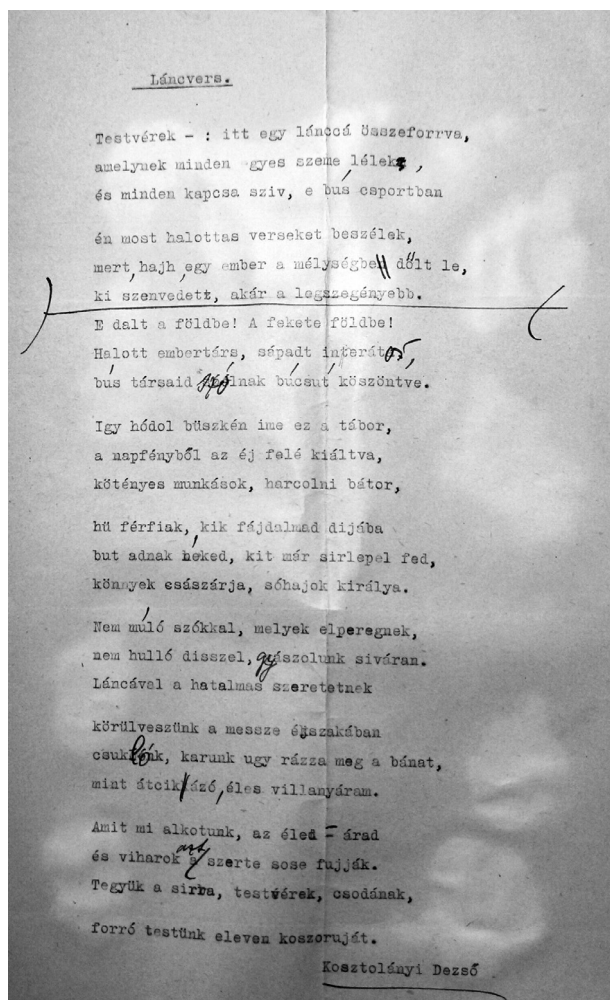 Láncvers.
Testvérek - : itt egy lánccá összeforrva,
amelynek minden gyes szeme lélek,
és minden kapcsa sziv, e bús csportban
én most halottas verseket beszélek,
mert, hajh, egy ember a mélységbe dőlt le,
ki szenvedett, akár a legszegényebb.
E dalt a földbe! A fekete földbe!
Halott embertárs, sápadt interátor,
bús társaid szólnak búcsút köszöntve.
Igy hódol büszkén ime ez a tábor,
a napfényből az éj felé kiáltva,
kötényes munkások, harcolni bátor,
hü férfiak, kik fájdalmad dijába
bút adnak neked, kit már sirlepel fed,
könnyek császárja, sóhajok királya.
Nem múló szókkal, melyek elperegnek,
nem hulló disszel, gyászolunk siváran.
Láncával a hatalmas szeretetnek
körülveszünk a messze éjszakában
csuklónk, karunk ugy rázza meg a bánat,
mint átcikázó, éles villanyáram.
Amit mi alkotunk, az éled - árad
és viharok azt szerte sose fujják.
Tegyük a sirba, testvérek, csodának,
forró testünk eleven koszoruját.
Kosztolányi Dezső